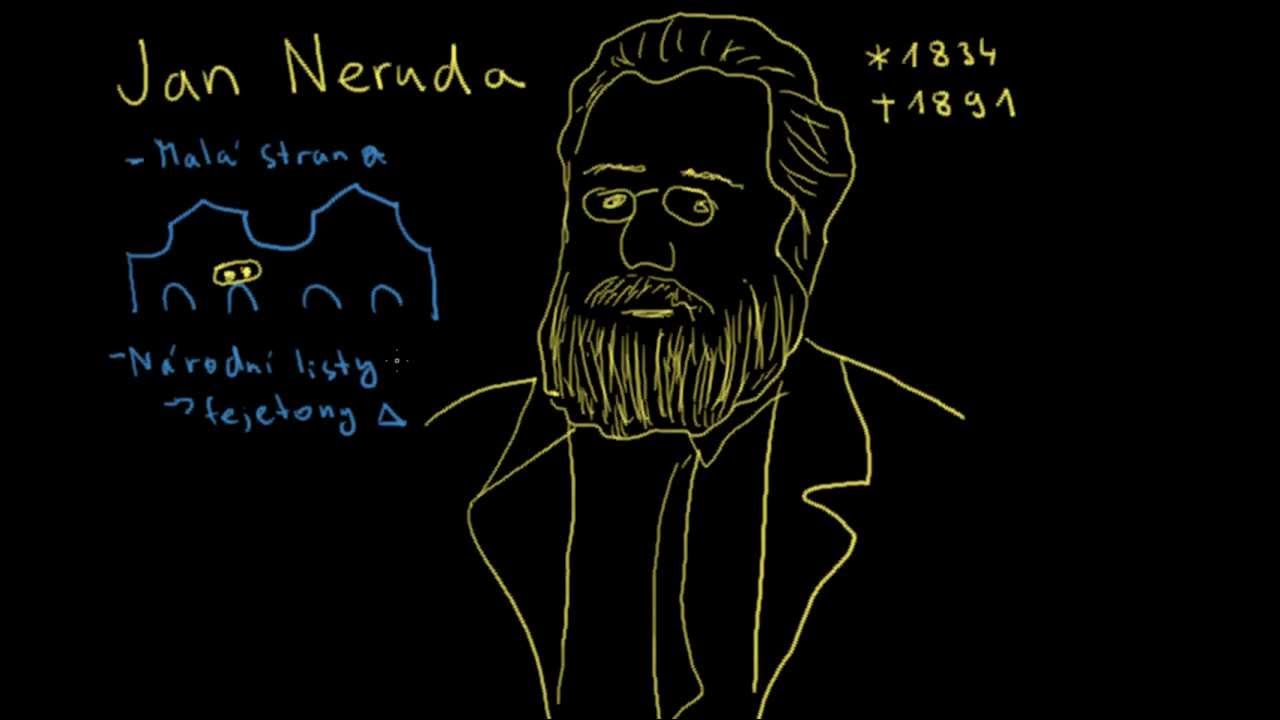 Jan Neruda
* 1834
† 1891
- Malá strana
- Národní listy
→ fejetony Δ